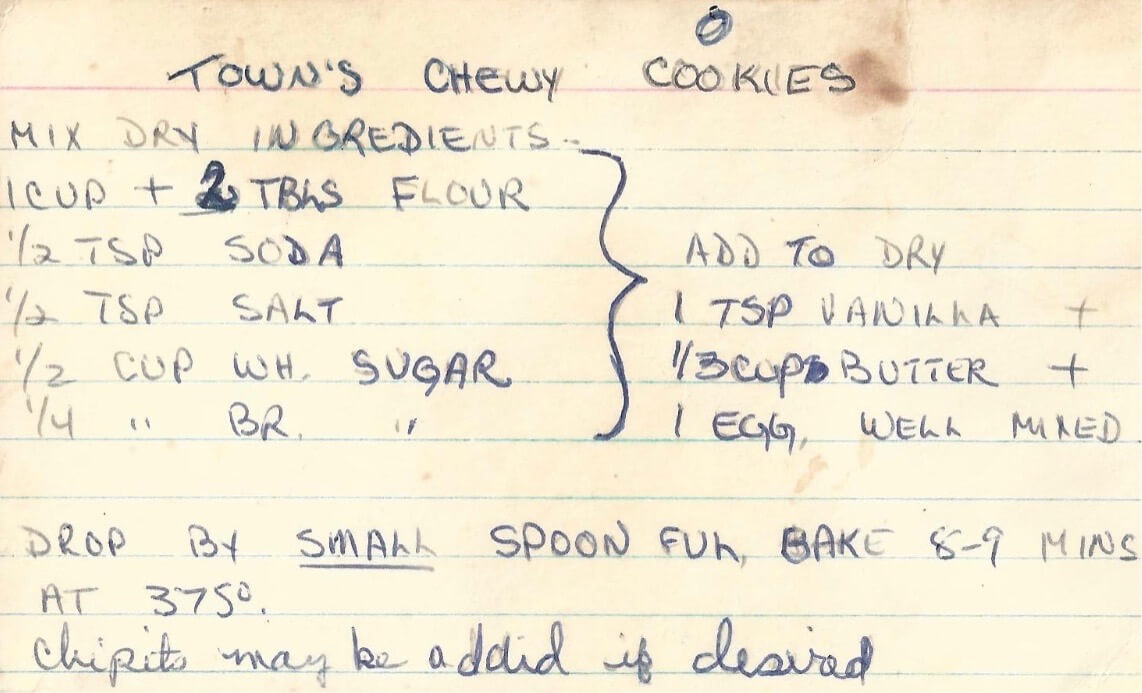 TOWN'S CHEWY COOKIES
MIX DRY INGREDIENTS -
1 CUP + 2 TBLS FLOUR
1/2 TSP SODA
1/2 TSP SALT
1/2 CUP WH. SUGAR
1/4 " BR. "
ADD TO DRY
1 TSP VANILLA +
1/3 CUP BUTTER +
1 EGG, WELL MIXED
DROP BY SMALL SPOON FUL, BAKE 8-9 MINS
AT 375°.
Chipits may be added if desired